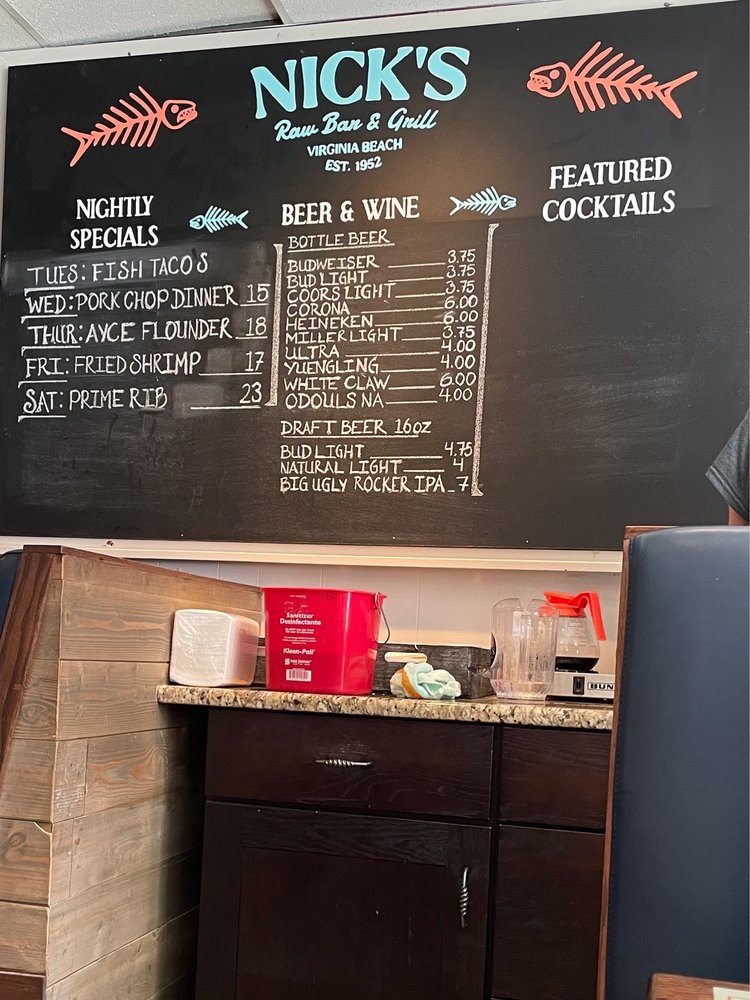 NICK'S
Raw Bar & Grill
VIRGINIA BEACH
EST. 1952
NIGHTLY
SPECIALS
TUES: FISH TACOS
WED: PORK CHOP DINNER 15
THUR: AYCE FLOUNDER 18
FRI: FRIED SHRIMP 17
SAT: PRIME RIB 23
BEER & WINE
BOTTLE BEER
BUDWEISER 3.75
BUD LIGHT 3.75
COORS LIGHT 3.75
CORONA 6.00
HEINEKEN 6.00
MILLER LIGHT 3.75
ULTRA 4.00
YUENGLING 4.00
WHITE CLAW 6.00
ODOULS NA 4.00
DRAFT BEER 16oz
BUD LIGHT 4.75
NATURAL LIGHT 4
BIG UGLY ROCKER IPA 7
FEATURED
COCKTAILS
Sanitizer
Desinfectante
Kleen-Pail
BUNN